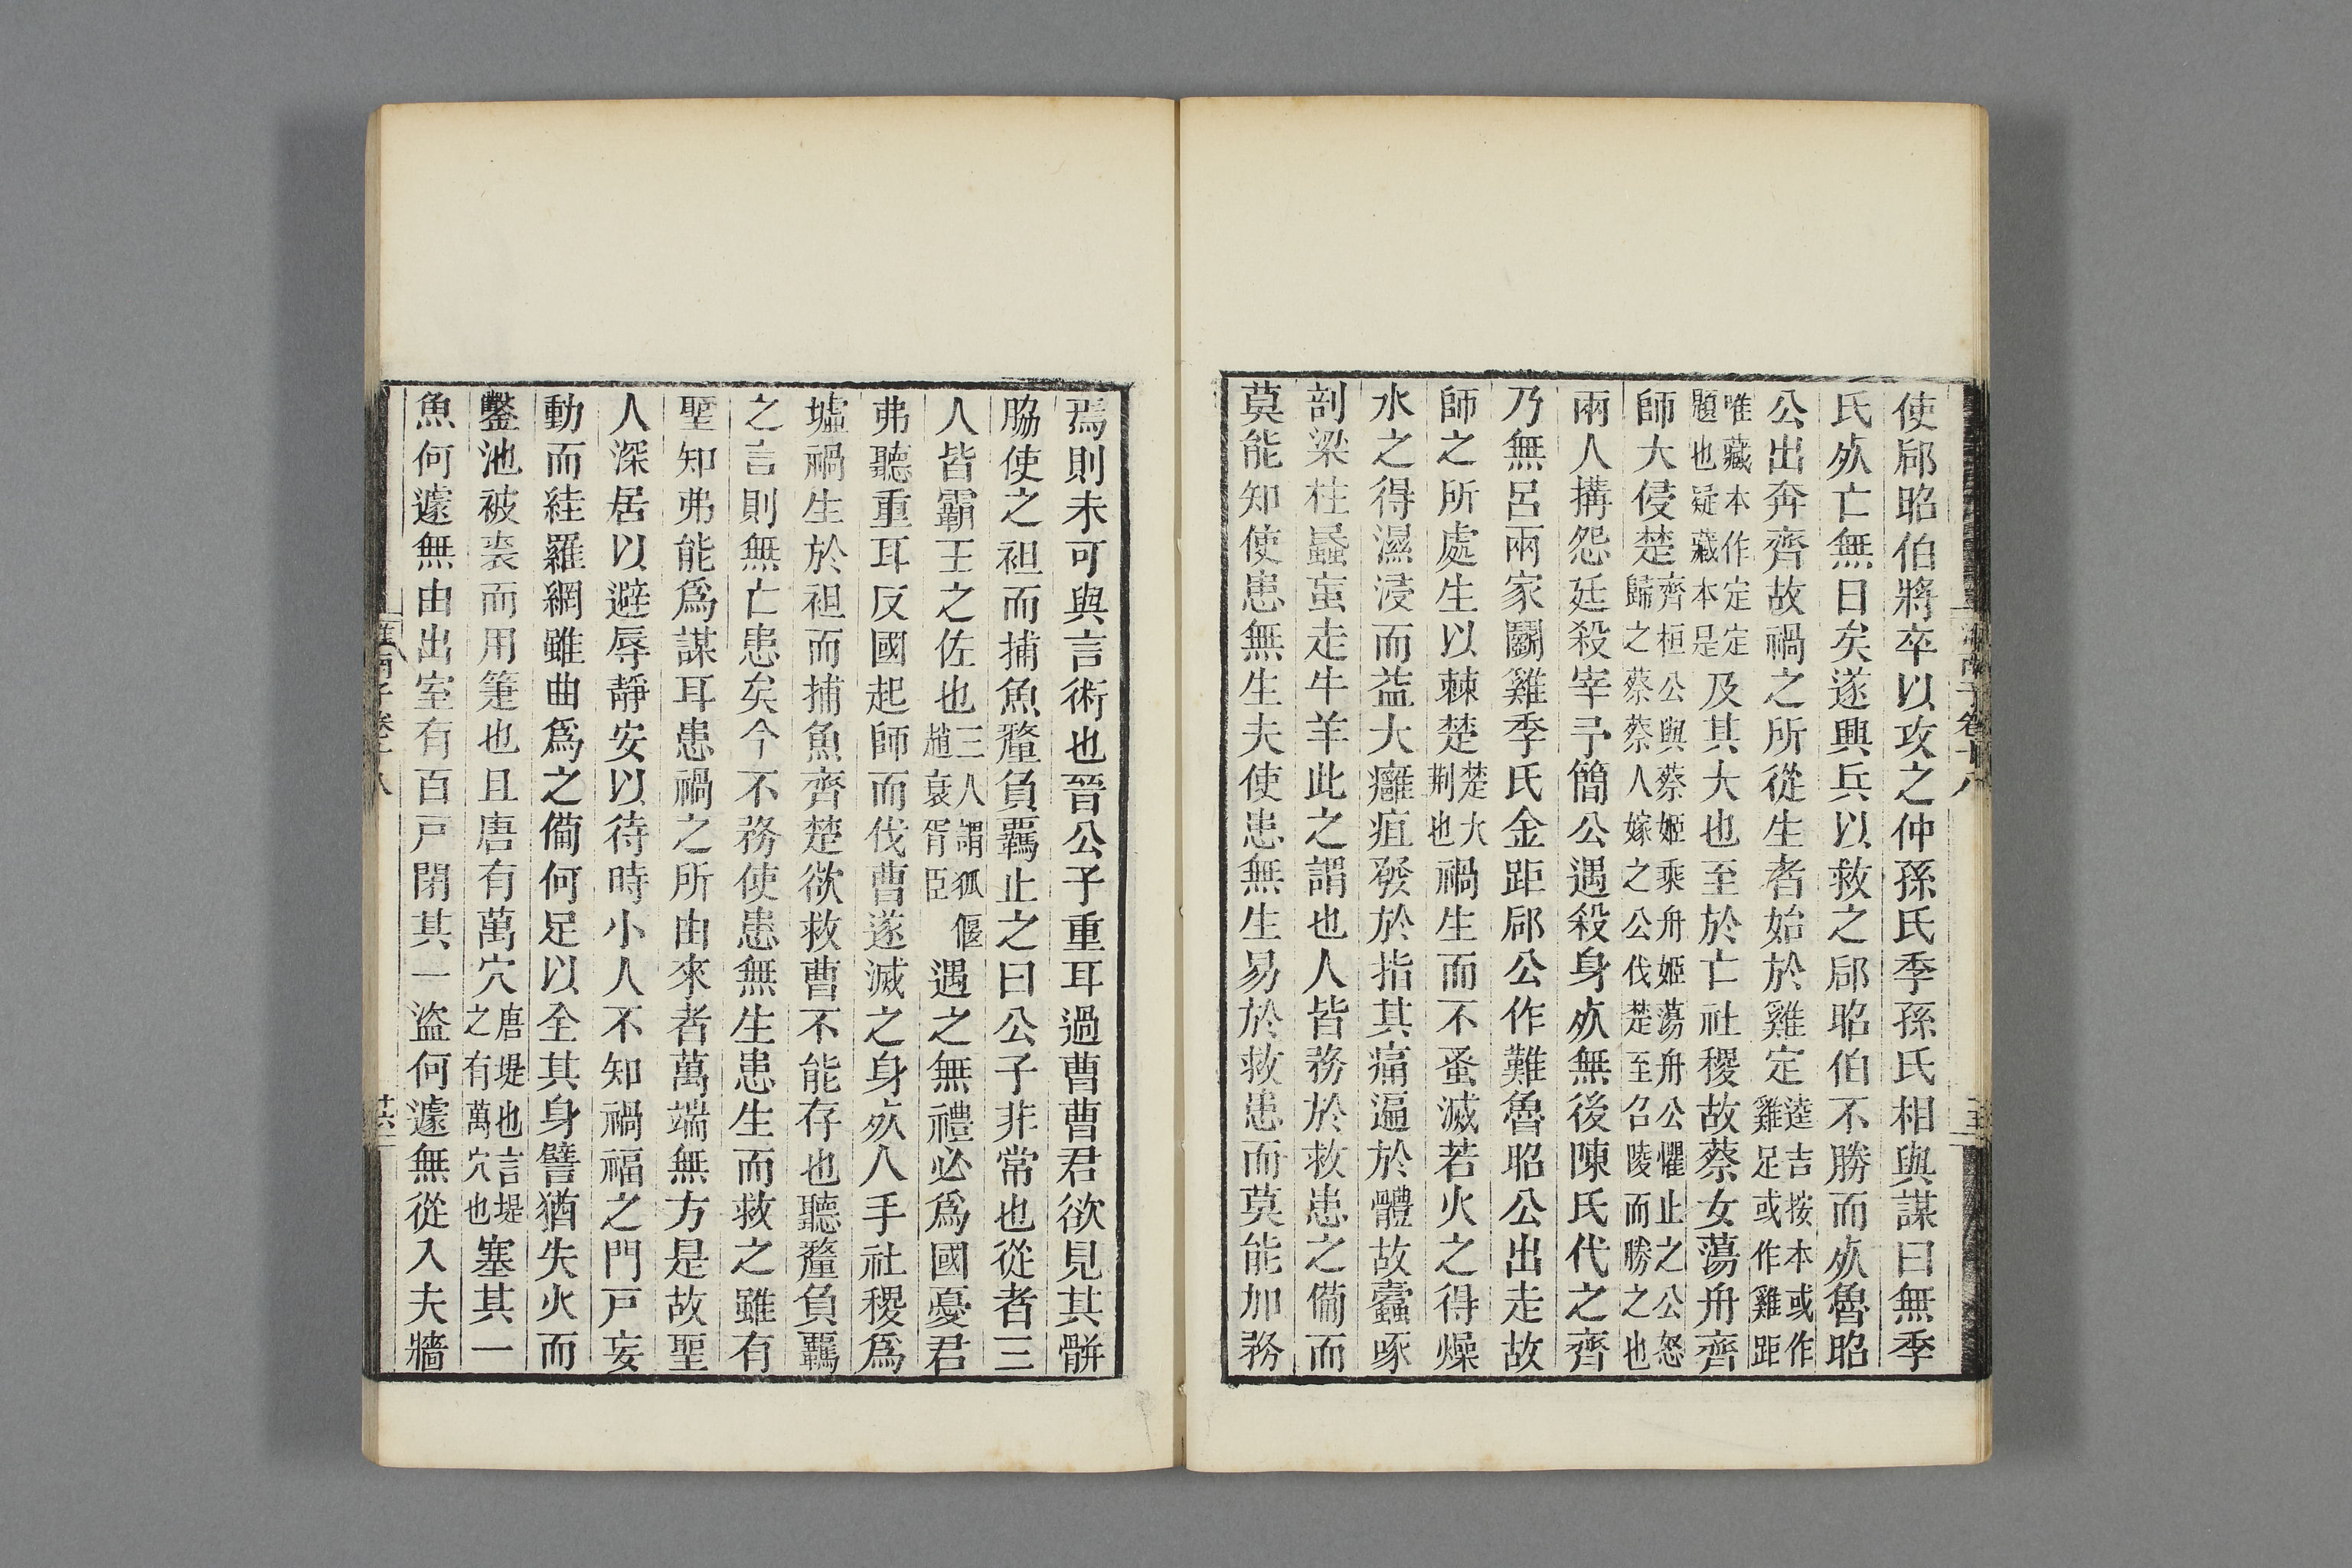 使郈昭伯將卒以攻之仲孫氏季孫氏相與謀曰無季
氏㱙亡無日矣遂興兵以救之郈昭伯不勝而㱙魯昭
公出奔齊故禍之所從生者始於雞定逵吉按本或作雞足或作雞距
唯藏本作定定題也疑藏本是及其大也至於亡社稷故蔡女蕩舟齊
師大侵楚齊桓公與蔡姬乘舟姬蕩舟公懼止之公怒歸之蔡蔡人嫁之公伐楚至召陵而勝之也
兩人搆怨廷殺宰予簡公遇殺身㱙無後陳氏代之齊
乃無呂兩家鬭雞季氏金距郈公作難魯昭公出走故
師之所處生以棘楚楚大荆也禍生而不蚤滅若火之得燥
水之得濕浸而益大癰疽發於指其痛遍於體故蠹啄
剖梁柱蟁䖟走牛羊此之謂也人皆務於救患之僃而
莫能知使患無生夫使患無生易於救患而莫能加務
焉則未可與言術也晉公子重耳過曹曹君欲見其骿
脇使之袒而捕魚釐負羈止之曰公子非常也從者三
人皆霸王之佐也三人謂狐偃趙衰胥臣遇之無禮必爲國憂君
弗聽重耳反國起師而伐曹遂滅之身㱙人手社稷爲
墟禍生於袒而捕魚齊楚欲救曹不能存也聽釐負羈
之言則無亡患矣今不務使患無生患生而救之雖有
聖知弗能爲謀耳患禍之所由來者萬端無方是故聖
人深居以避辱靜安以待時小人不知禍福之門戸妄
動而絓羅網雖曲爲之僃何足以全其身譬猶失火而
鑿池被裘而用箑也且唐有萬穴唐堤也言堤之有萬穴也塞其一
魚何遽無由出室有百戸閉其一盜何遽無從入夫牆
淮南子卷十八